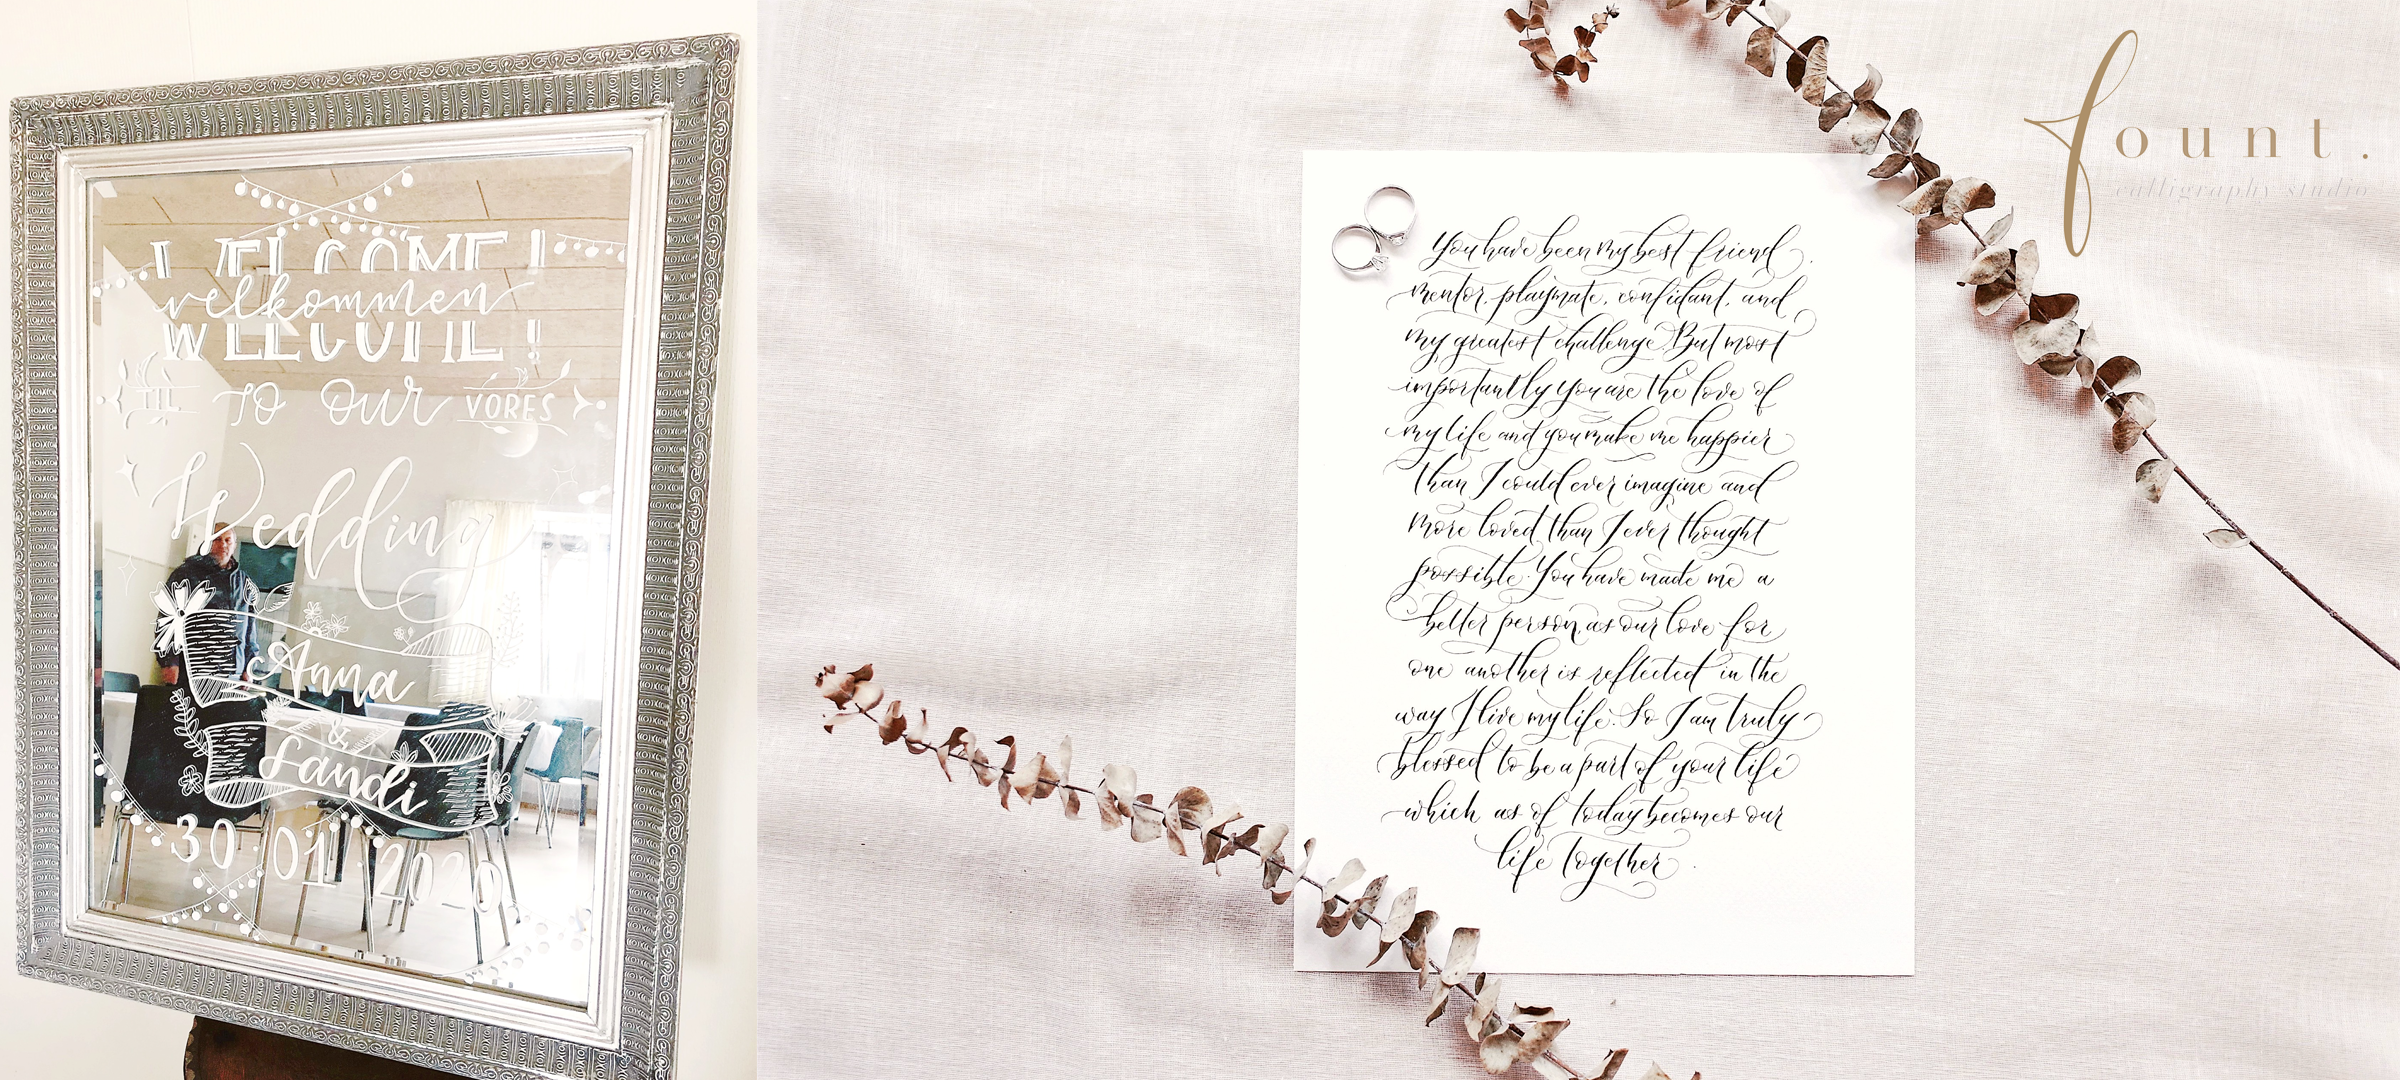 WELCOME!
velkommen
TIL TO OUR VORES
Wedding
Anna
&
Sandi
30 · 01 · 2020
You have been my best friend
mentor, playmate, confidant, and
my greatest challenge. But most
importantly you are the love of
my life and you make me happier
than I could ever imagine and
more loved than I ever thought
possible. You have made me a
better person, as our love for
one another is reflected in the
way I live my life. So I am truly
blessed to be a part of your life
which as of today becomes our
life together
fount.
calligraphy studio